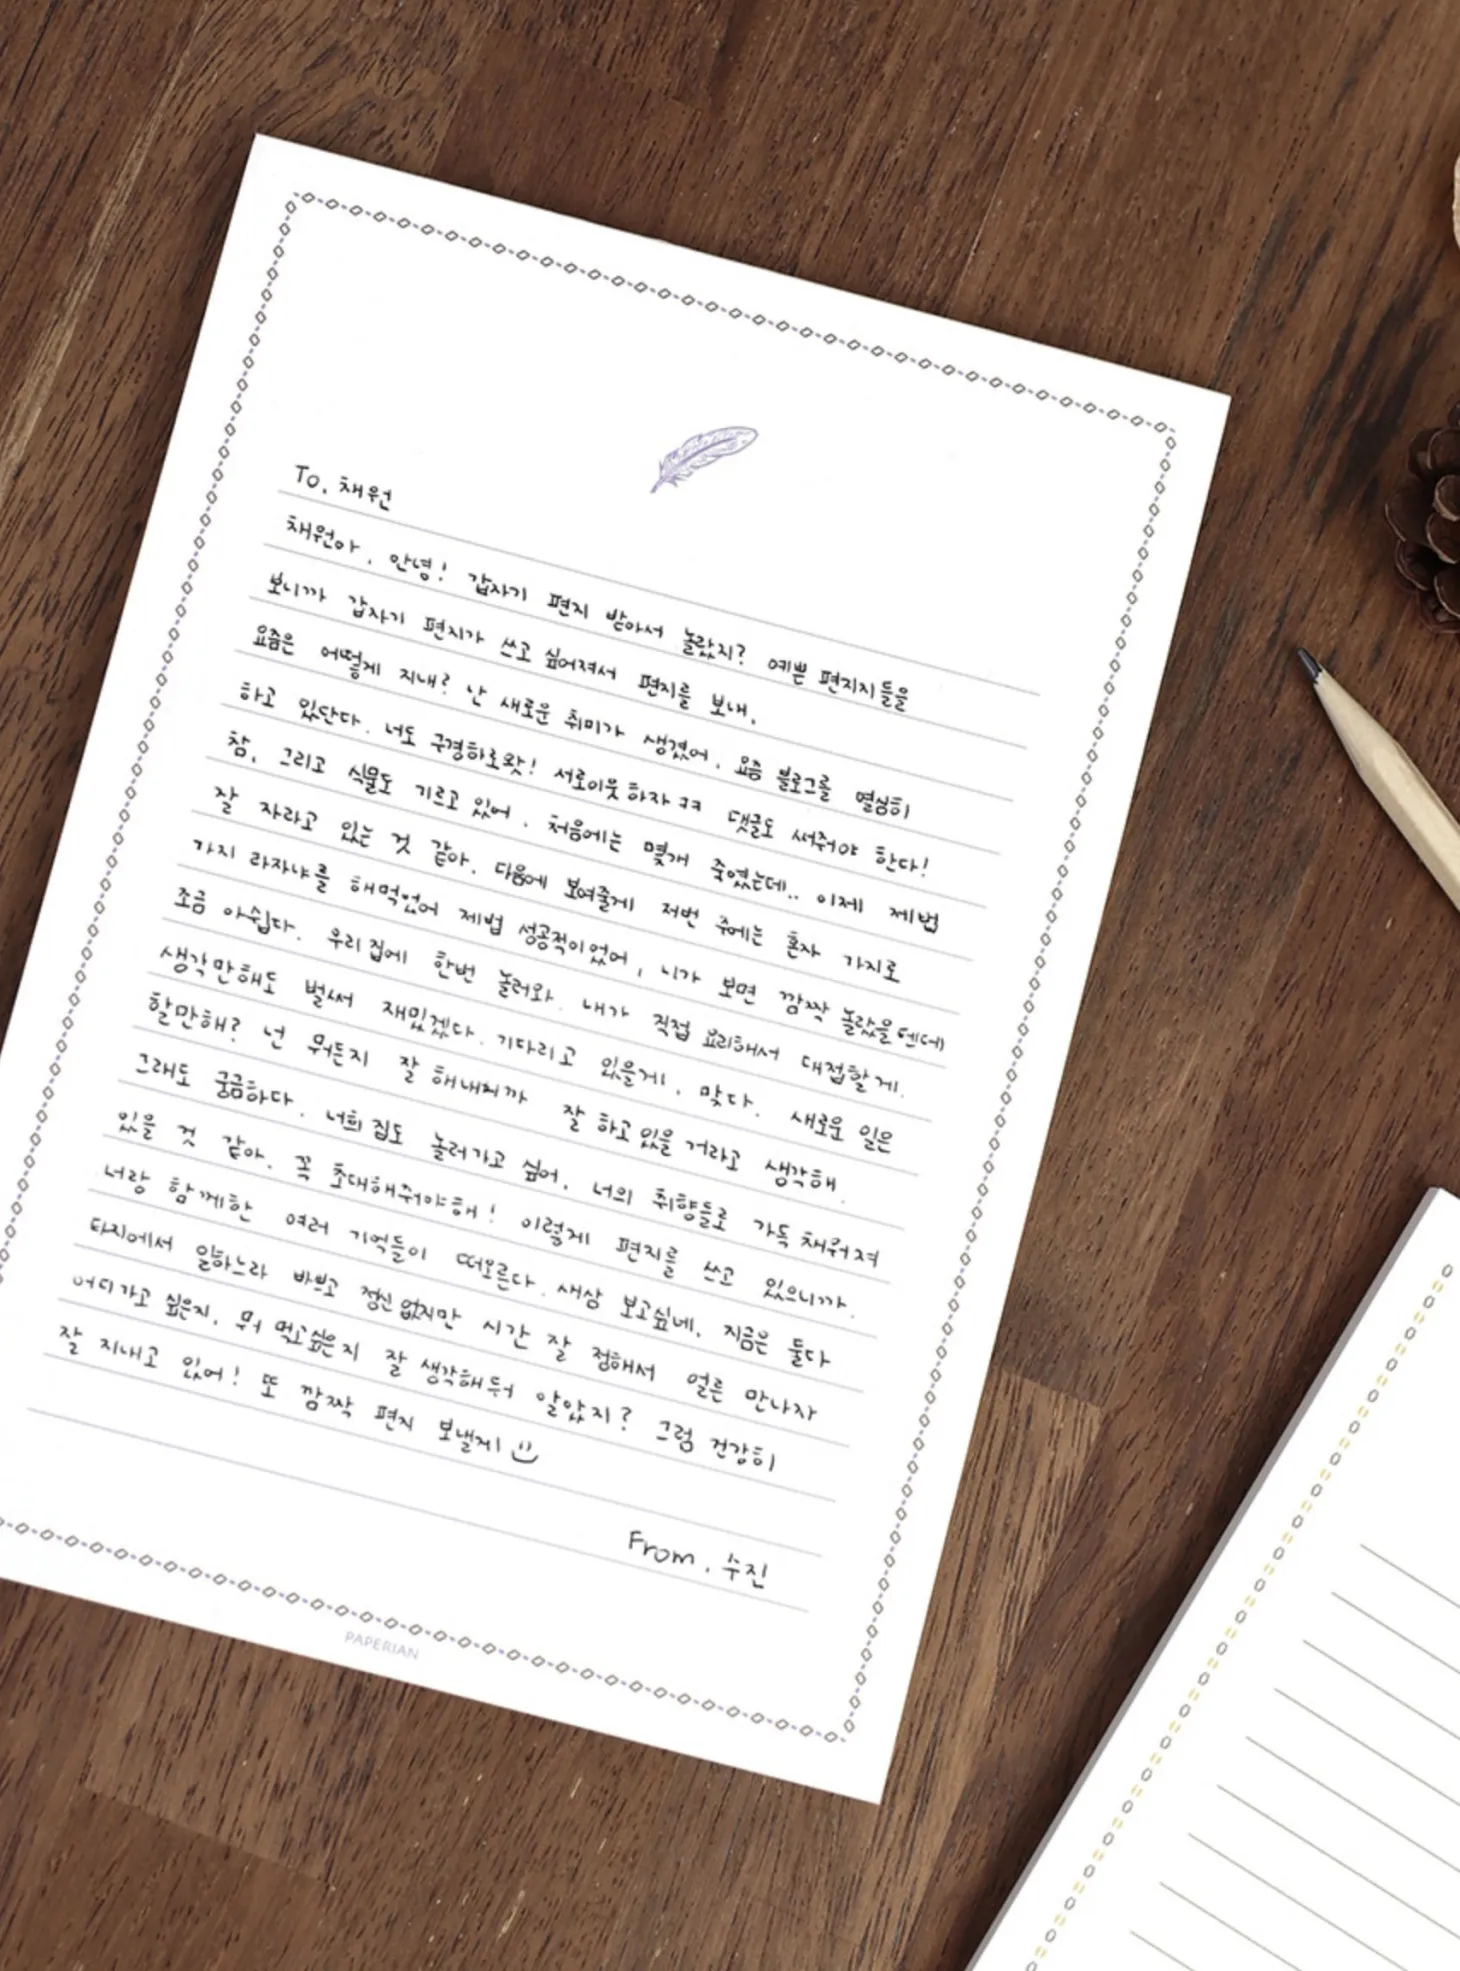 To. 채원
채원아. 안녕! 갑자기 편지 받아서 놀랐지? 예쁜 편지지들을
보니까 갑자기 편지가 쓰고 싶어져서 편지를 보내.
요즘은 어떻게 지내? 난 새로운 취미가 생겼어. 요즘 블로그를 열심히
하고 있단다. 너도 구경하러왓! 서로이웃하자ㅋㅋ 댓글도 써줘야 한다!
참, 그리고 식물도 기르고 있어. 처음에는 몇개 죽였는데.. 이제 제법
잘 자라고 있는 것 같아. 다음에 보여줄게 저번 주에는 혼자 가지로
가지 라자냐를 해먹었어 제법 성공적이었어, 니가 보면 깜짝 놀랐을텐데
조금 아쉽다. 우리집에 한번 놀러와. 내가 직접 요리해서 대접할게.
생각만해도 벌써 재밌겠다. 기다리고 있을게. 맞다. 새로운 일은
할만해? 넌 뭐든지 잘 해내니까 잘 하고 있을 거라고 생각해.
그래도 궁금하다. 너희집도 놀러가고 싶어. 너의 취향들로 가득 채워져
있을 것 같아. 꼭 초대해줘야해! 이렇게 편지를 쓰고 있으니까
너랑 함께한 여러 기억들이 떠오른다. 새삼 보고싶네. 지금은 둘다
타지에서 일하느라 바쁘고 정신없지만 시간 잘 정해서 얼른 만나자
어디가고 싶은지, 뭐 먹고싶은지 잘 생각해둬 알았지? 그럼 건강히
잘 지내고 있어! 또 깜짝 편지 보낼게
From. 수진
PAPERIAN